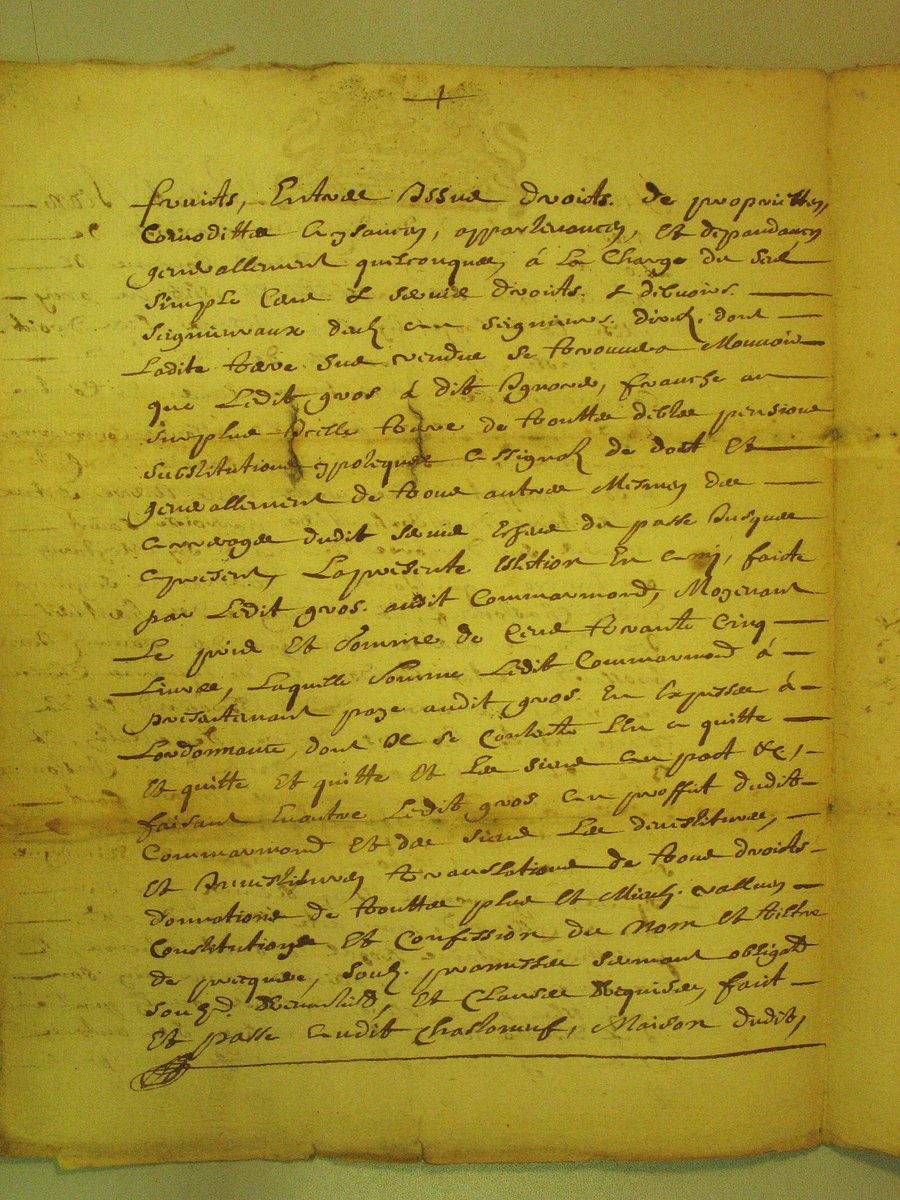 fruits, Entree Issue droits. de proprietten,
Comoditten Aysancen, appartenancen, et depandancen
generallement quelconquen, á La Charge du seul
simple Cens & servis droits. & debvoirs.
seignieuraux deub au seignieur. direct. dont
Ladite terre sus vendue se trouvera Mouvoir
que Ledit gros á dit Ignore, franche au
surplus Icelle terre de touttes debtes pensions
substitutions ypoteques assignaõn de dott et
generallement de tous autres Mesmes des
arreyages dudit servis Escheu du passe Jusques
apresent, La presente faite
par Ledit gros. audit Commarmond, Moyenant
Le pris et somme de Cens trante Cinq
Livres, Laquelle somme Ledit Commarmond á
presentement paye audit gros. En Especes á
Lordonnance, dont Il se Contente Len a quitte
et quitte et quitte et Les siens au pact &c,
faisant Enoutre Ledit gros au proffit dudit
Commarmond et des siens Les devestitures,
et Investitures translations de tous droits
donnations de touttes plus et Mieux. vallues
Constitutions et Confession du Nom et tiltre
de precquere, soub. promesses serment obligaõn
soubz. Renonciaõn, et Clauses Requises, fait
et passe audit Chasloneuf, Maison dudit,